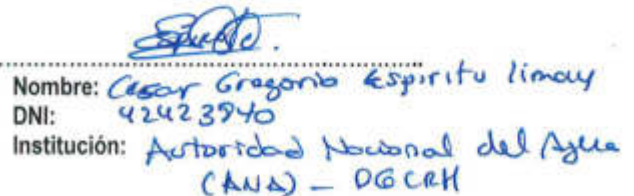 Nombre: Cesar Gregorio Espiritu limay
DNI: 42423940
Institución: Autoridad Nacional del Agua
(ANA) - DGCRH